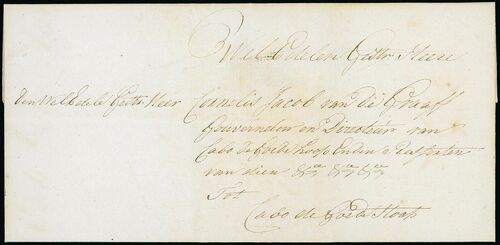 WelEdelen Gestr Heere
Den WelEdele Gestr Heer Cornelis Jacob van de Graaff
Gouverneur en Directeur van
Cabo de Goede Hoop En den
van dien &ca &ca &ca
Tot
Cabo de Goede Hoop